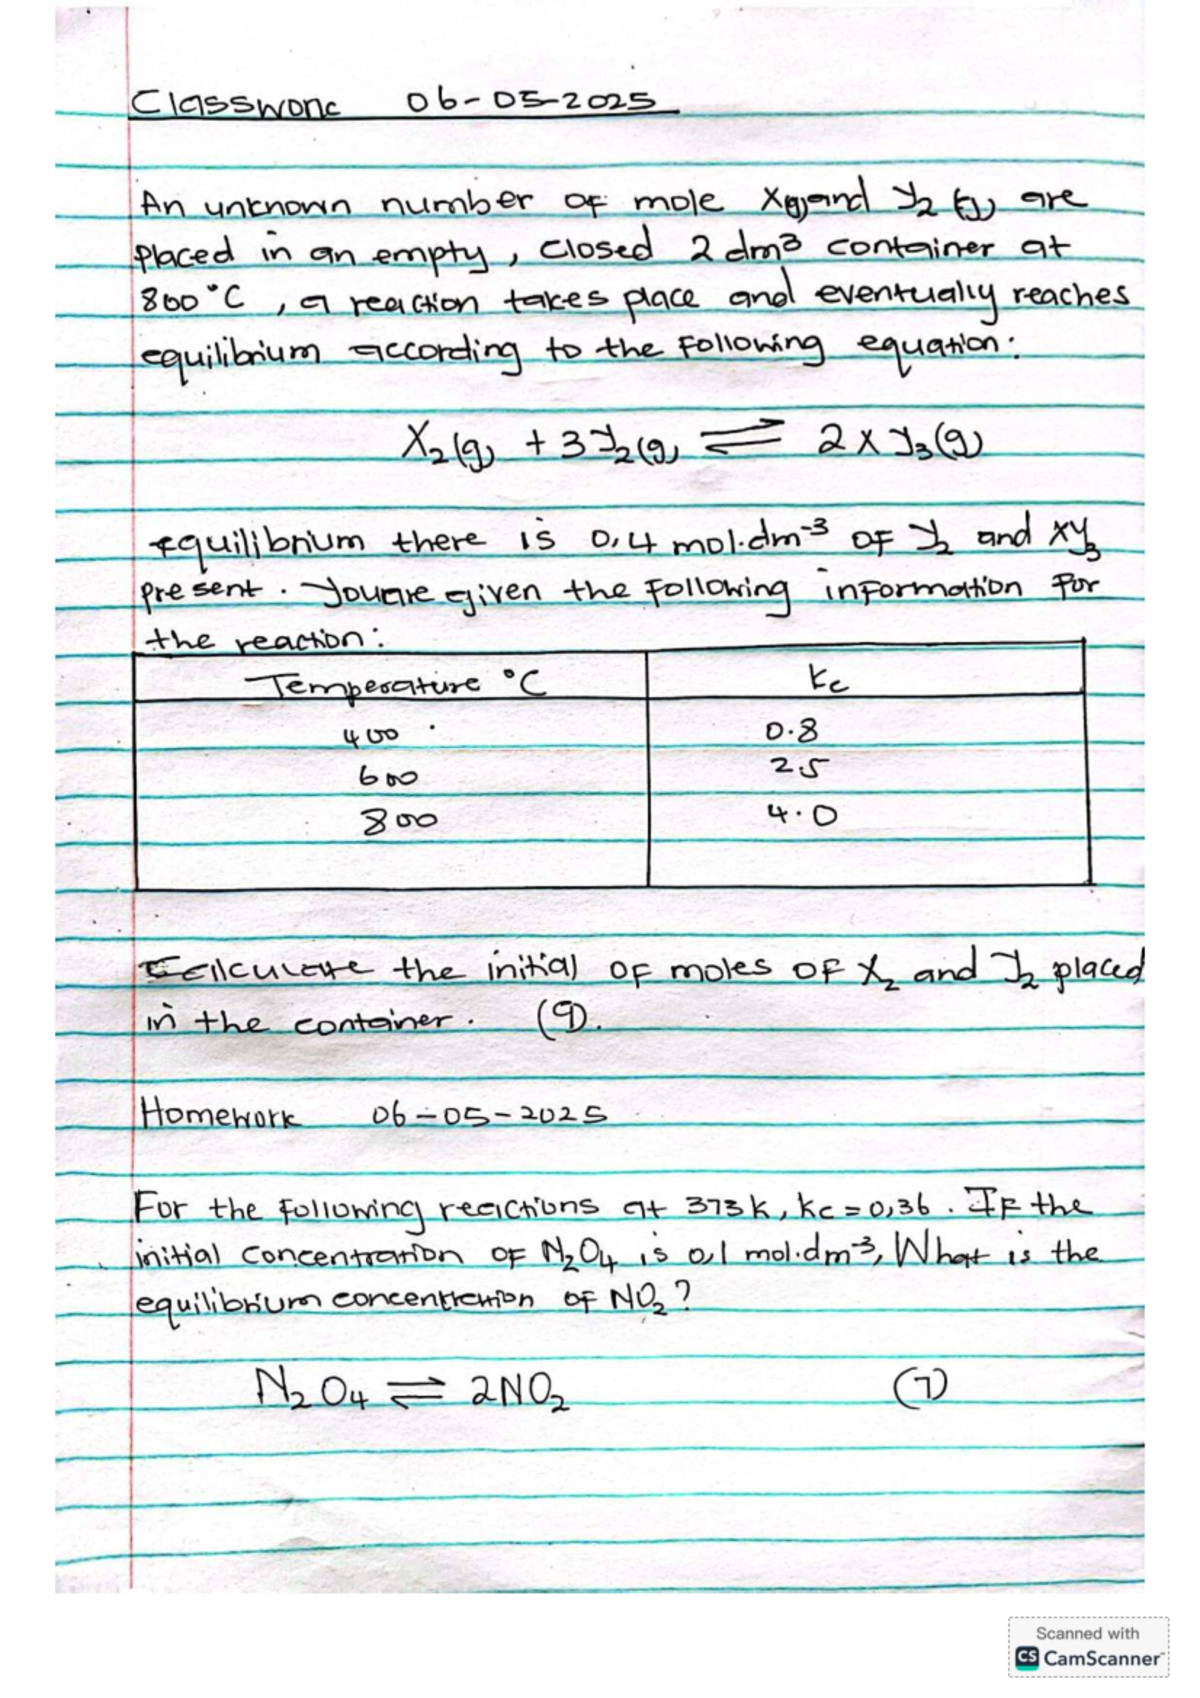 Classwork 06-05-2025
An unknown number of mole X(g) and Y₂(g) are
placed in an empty, closed 2 dm³ container at
800°C, a reaction takes place and eventually reaches
equilibrium according to the following equation:
X₂(g) + 3Y₂(g) ⇌ 2XY₃(g)
equilibrium there is 0,4 mol.dm⁻³ of Y₂ and XY₃
present. You are given the following information for
the reaction:
Temperature °C Kc
400 0.8
600 2.5
800 4.0
Calculate the initial of moles of X₂ and Y₂ placed
in the container. (9).
Homework 06-05-2025
For the following reactions at 373K, Kc = 0,36. If the
initial concentration of N₂O₄ is 0,1 mol.dm⁻³, What is the
equilibrium concentration of NO₂?
N₂O₄ ⇌ 2NO₂ (7)
Scanned with
CS CamScanner